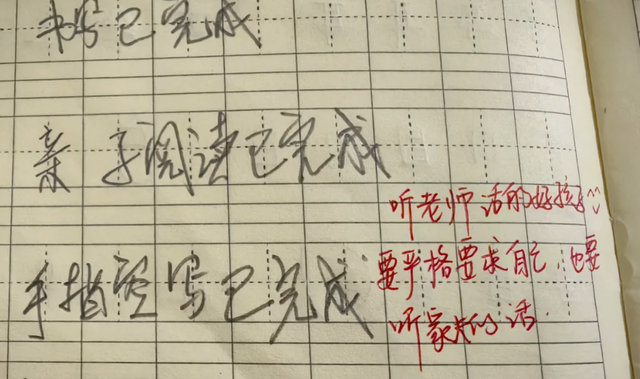 书写已完成
亲子阅读已完成
手指空写已完成
听老师话的好孩子
要严格要求自己,也要
听家长的话.